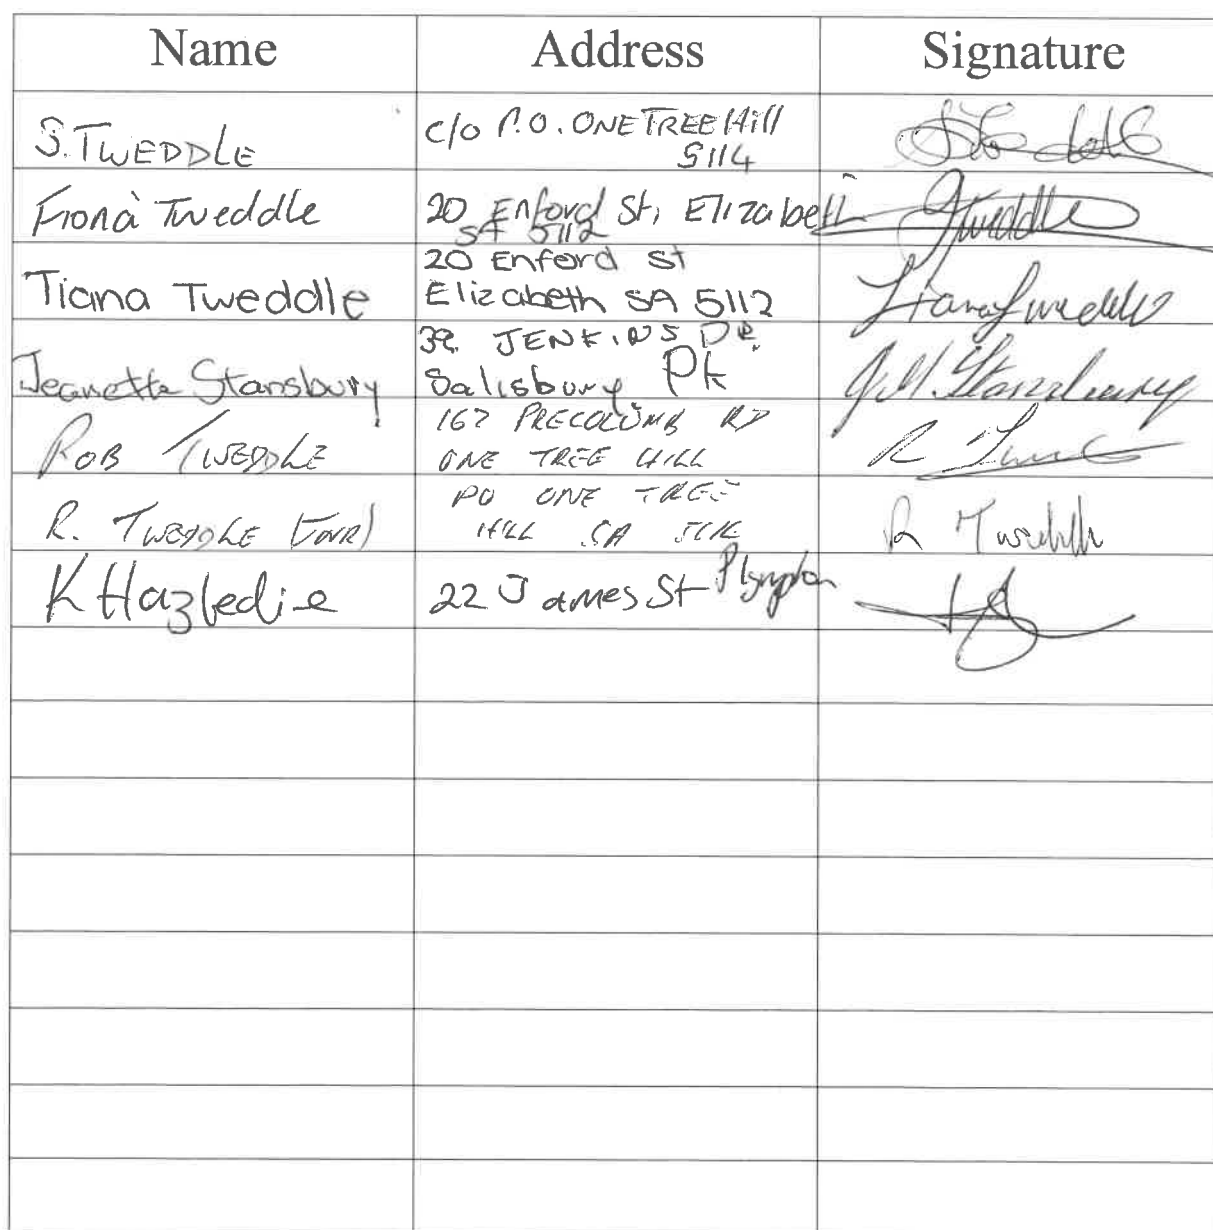 Name Address Signature
S. TWEDDLE
c/o P.O. ONE TREE Hill
5114
Fiona Tweddle
20 Enford St, Elizabeth
SA 5112
Tweddle
Tiana Tweddle
20 Enford St
Elizabeth SA 5112
Tiana Tweddle
Jeanette Stansbury
39 JENKINS DR.
Salisbury Pk
J.M. Stansbury
ROB TWEDDLE
ONE TREE HILL
R. TWEDDLE
PO ONE TREE
HILL SA
R Tweddle
K Hazledie
22 James St Plympton